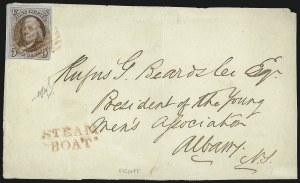 Rufus G. Beardslee Esq.
President of the Young
Men's Association
Albany
N.Y.
STEAM
BOAT